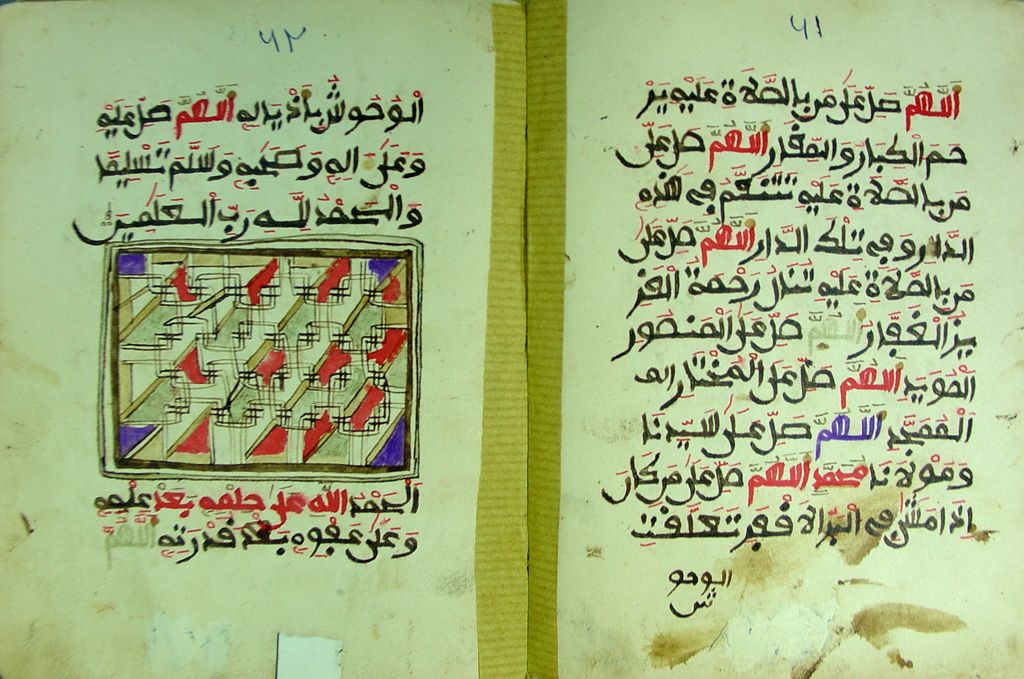 ٦١
اللهم صل على من بالصلاة عليه ير
حم الكبار والصغار اللهم صل على
من بالصلاة عليه نتنعم في هذه
الدار وفي تلك الدار اللهم صل على
من بالصلاة عليه تنال رحمة العز
يز الغفار اللهم صل على المنصور
المويد اللهم صل على المختار
الممجد اللهم صل على سيدنا
ومولانا محمد اللهم صل على من كان
اذا مشى في البر الا فقر تعلقت
الوحو
ش
٦٢
الوحوش باذياله اللهم صل عليه
وعلى اله وصحبه وسلم تسليما
والحمد لله رب العلمين
الحمد الله على حلمه بعد علمه
وعلى عفوه بعد قدرته اللهم